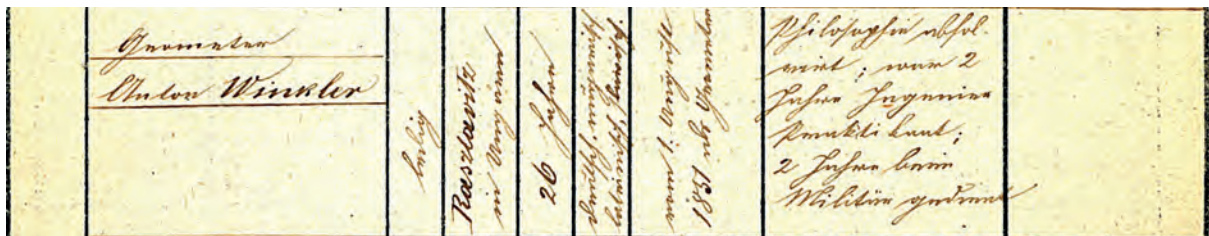 Geometer
Anton Winkler
ledig
Raszlavitz
in Ungarn
26 Jahre
deutsch, ungarisch,
lateinisch,
vom 1. August
1831 als Geometer
Philosophie absol-
virt; war 2
Jahre Ingenieur
Praktikant;
2 Jahre beim
Militär gedient